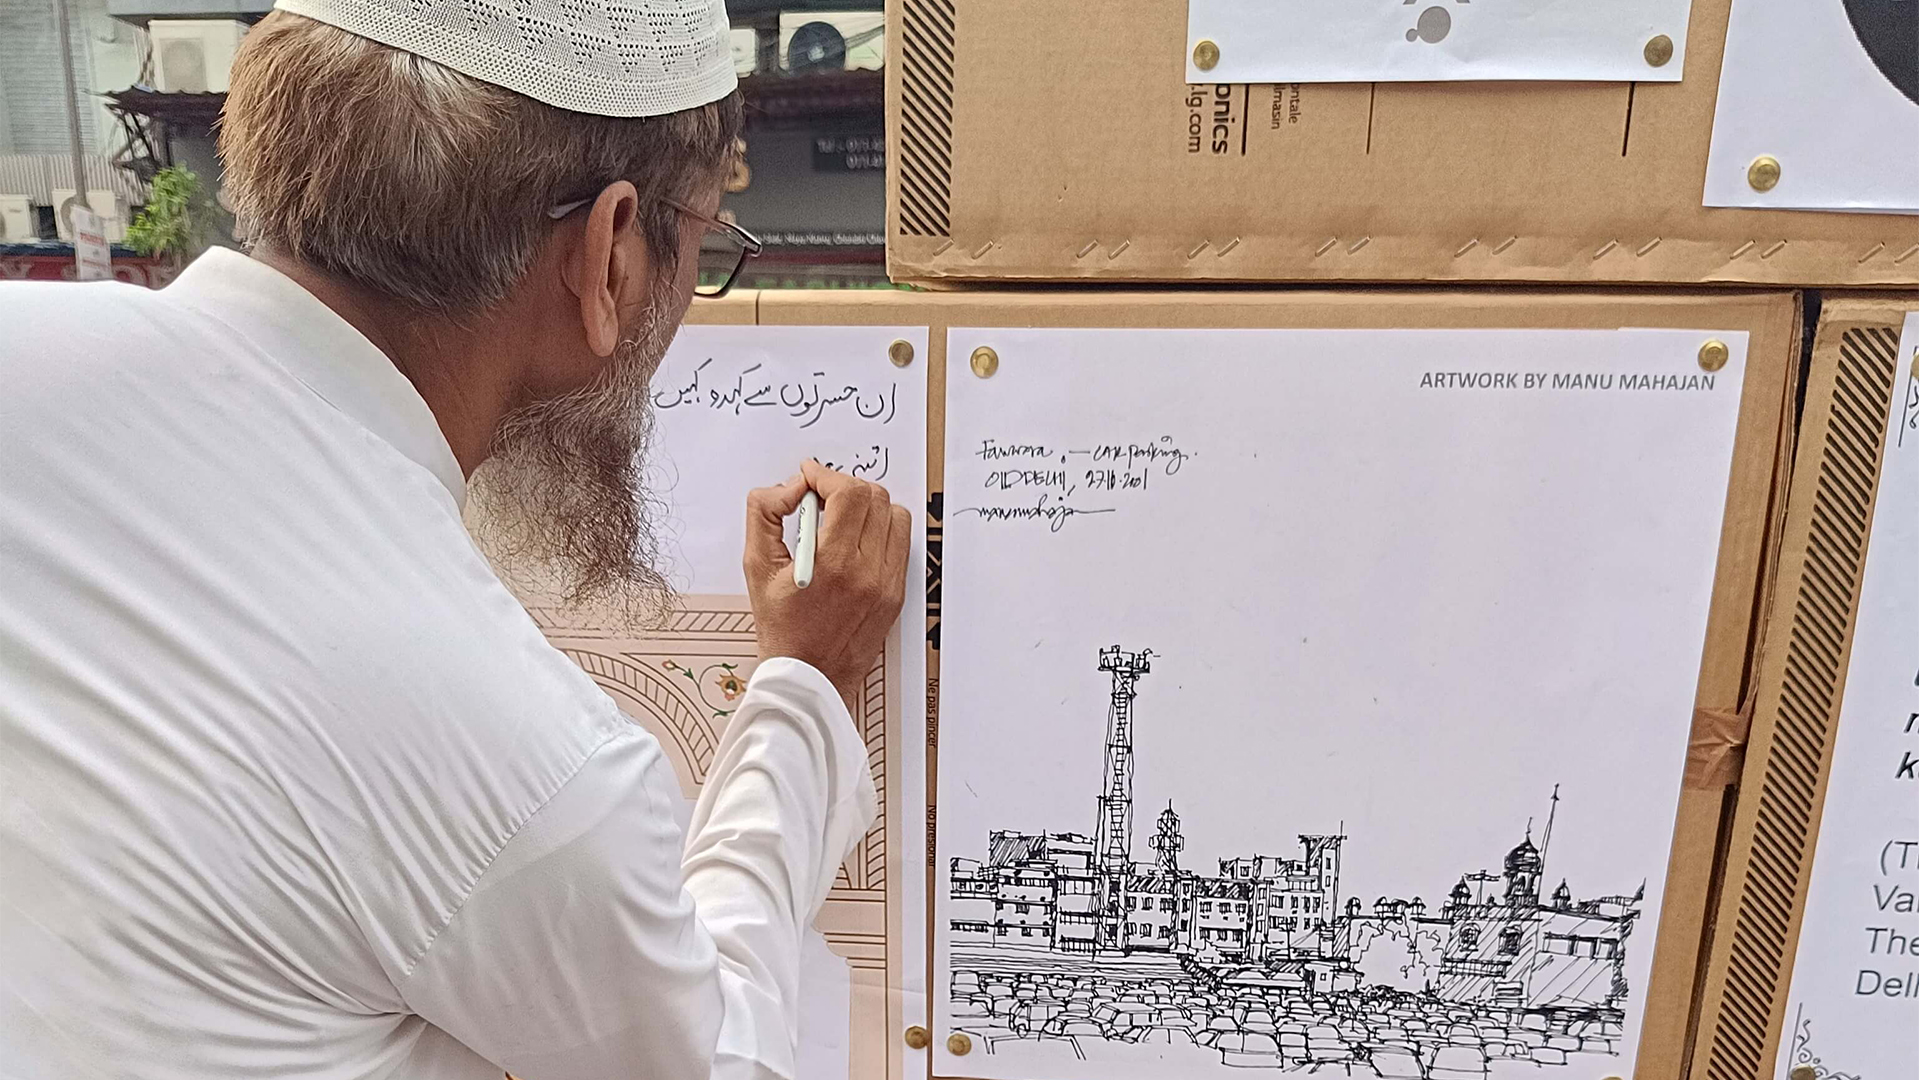 onics
.lg.com
ontale
lmasin
ان حسرتوں سے کہدو کہیں
اتنی
ARTWORK BY MANU MAHAJAN
Fawwara. — CAR parking.
OLD DELHI, 27.10.2001
manumahajan
Ne pas pincer
No presionar
(T
Va
The
Dell